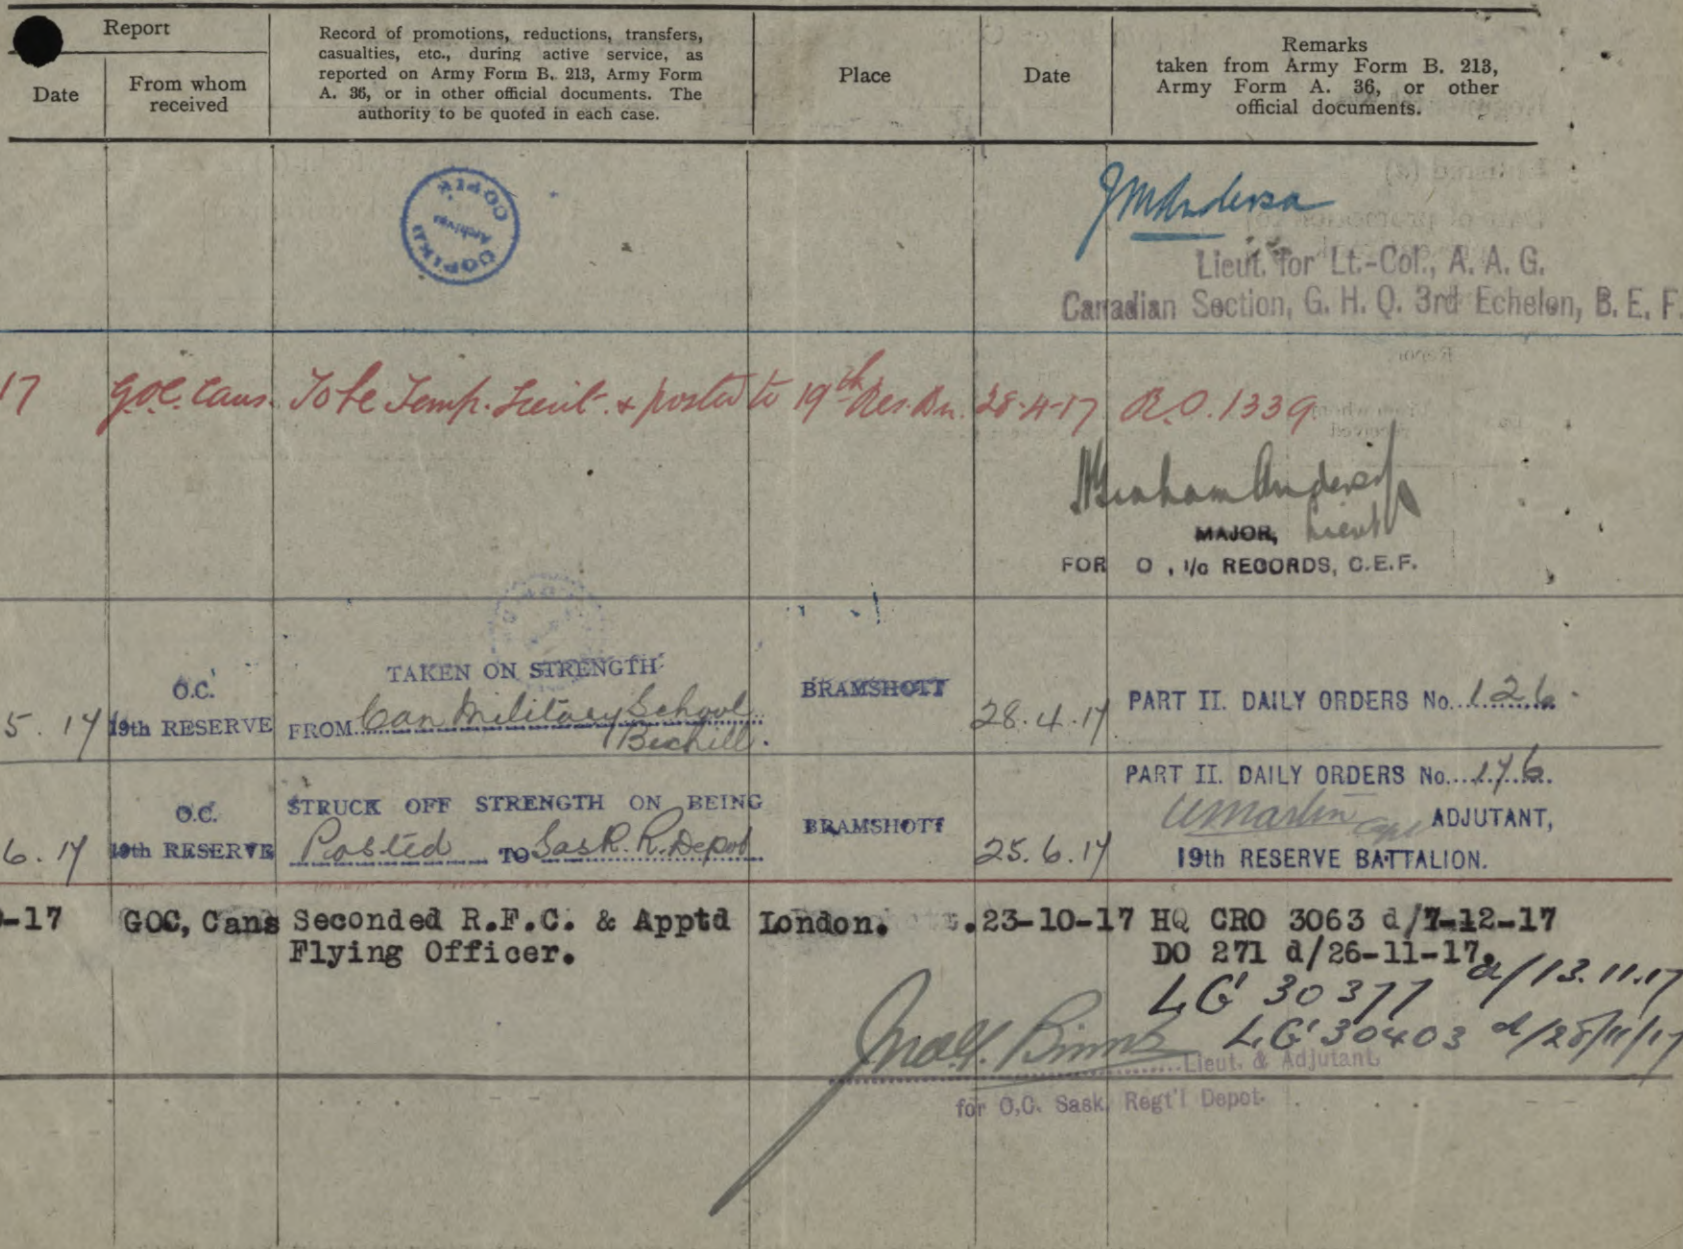 Report
Date
From whom
received
Record of promotions, reductions, transfers,
casualties, etc., during active service, as
reported on Army Form B. 213, Army Form
A. 36, or in other official documents. The
authority to be quoted in each case.
Place
Date
Remarks
taken from Army Form B. 213,
Army Form A. 36, or other
official documents.
COPIED
Archives
Lieut. for Lt.-Col., A. A. G.
Canadian Section, G. H. Q. 3rd Echelon, B. E. F.
17 G.O.C. Cans. To be Temp. Lieut. & posted to 19th Res. Bn. 28-4-17 R.O. 1339
MAJOR, Lieut
FOR O, i/c RECORDS, C.E.F.
5. 17 O.C.
19th RESERVE
TAKEN ON STRENGTH
FROM Can Military School
Bexhill.
BRAMSHOTT
28.4.17
PART II. DAILY ORDERS No. 126.
6. 17 O.C.
19th RESERVE
STRUCK OFF STRENGTH ON BEING
Posted TO Sask. R. Depot
BRAMSHOTT
25.6.17
PART II. DAILY ORDERS No. 176.
ADJUTANT,
19th RESERVE BATTALION.
-17 GOC, Cans Seconded R.F.C. & Apptd London. 23-10-17 HQ CRO 3063 d/7-12-17
Flying Officer. DO 271 d/26-11-17.
LG 30377 d/13.11.17
LG 30403 d/28/11/17
Lieut. & Adjutant
for O.C. Sask. Regt'l Depot